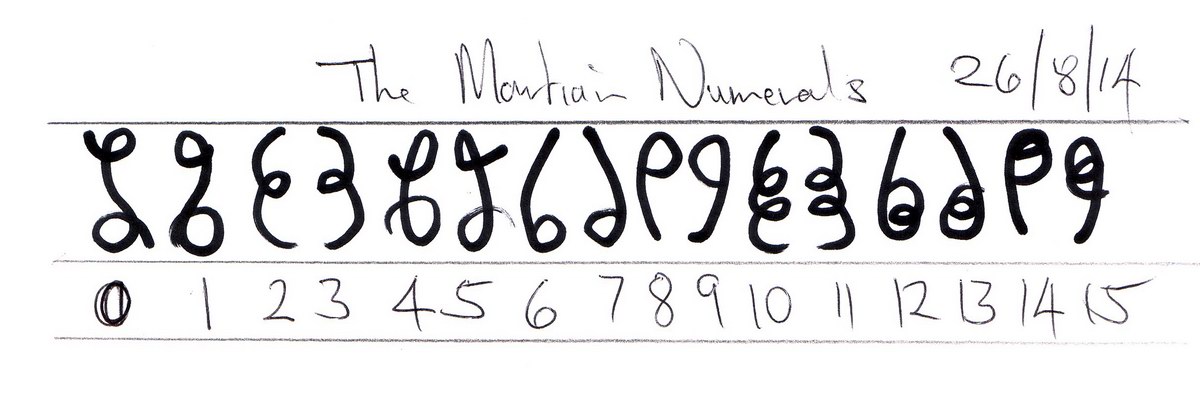 The Martian Numerals 26/8/14
0 1 2 3 4 5 6 7 8 9 10 11 12 13 14 15